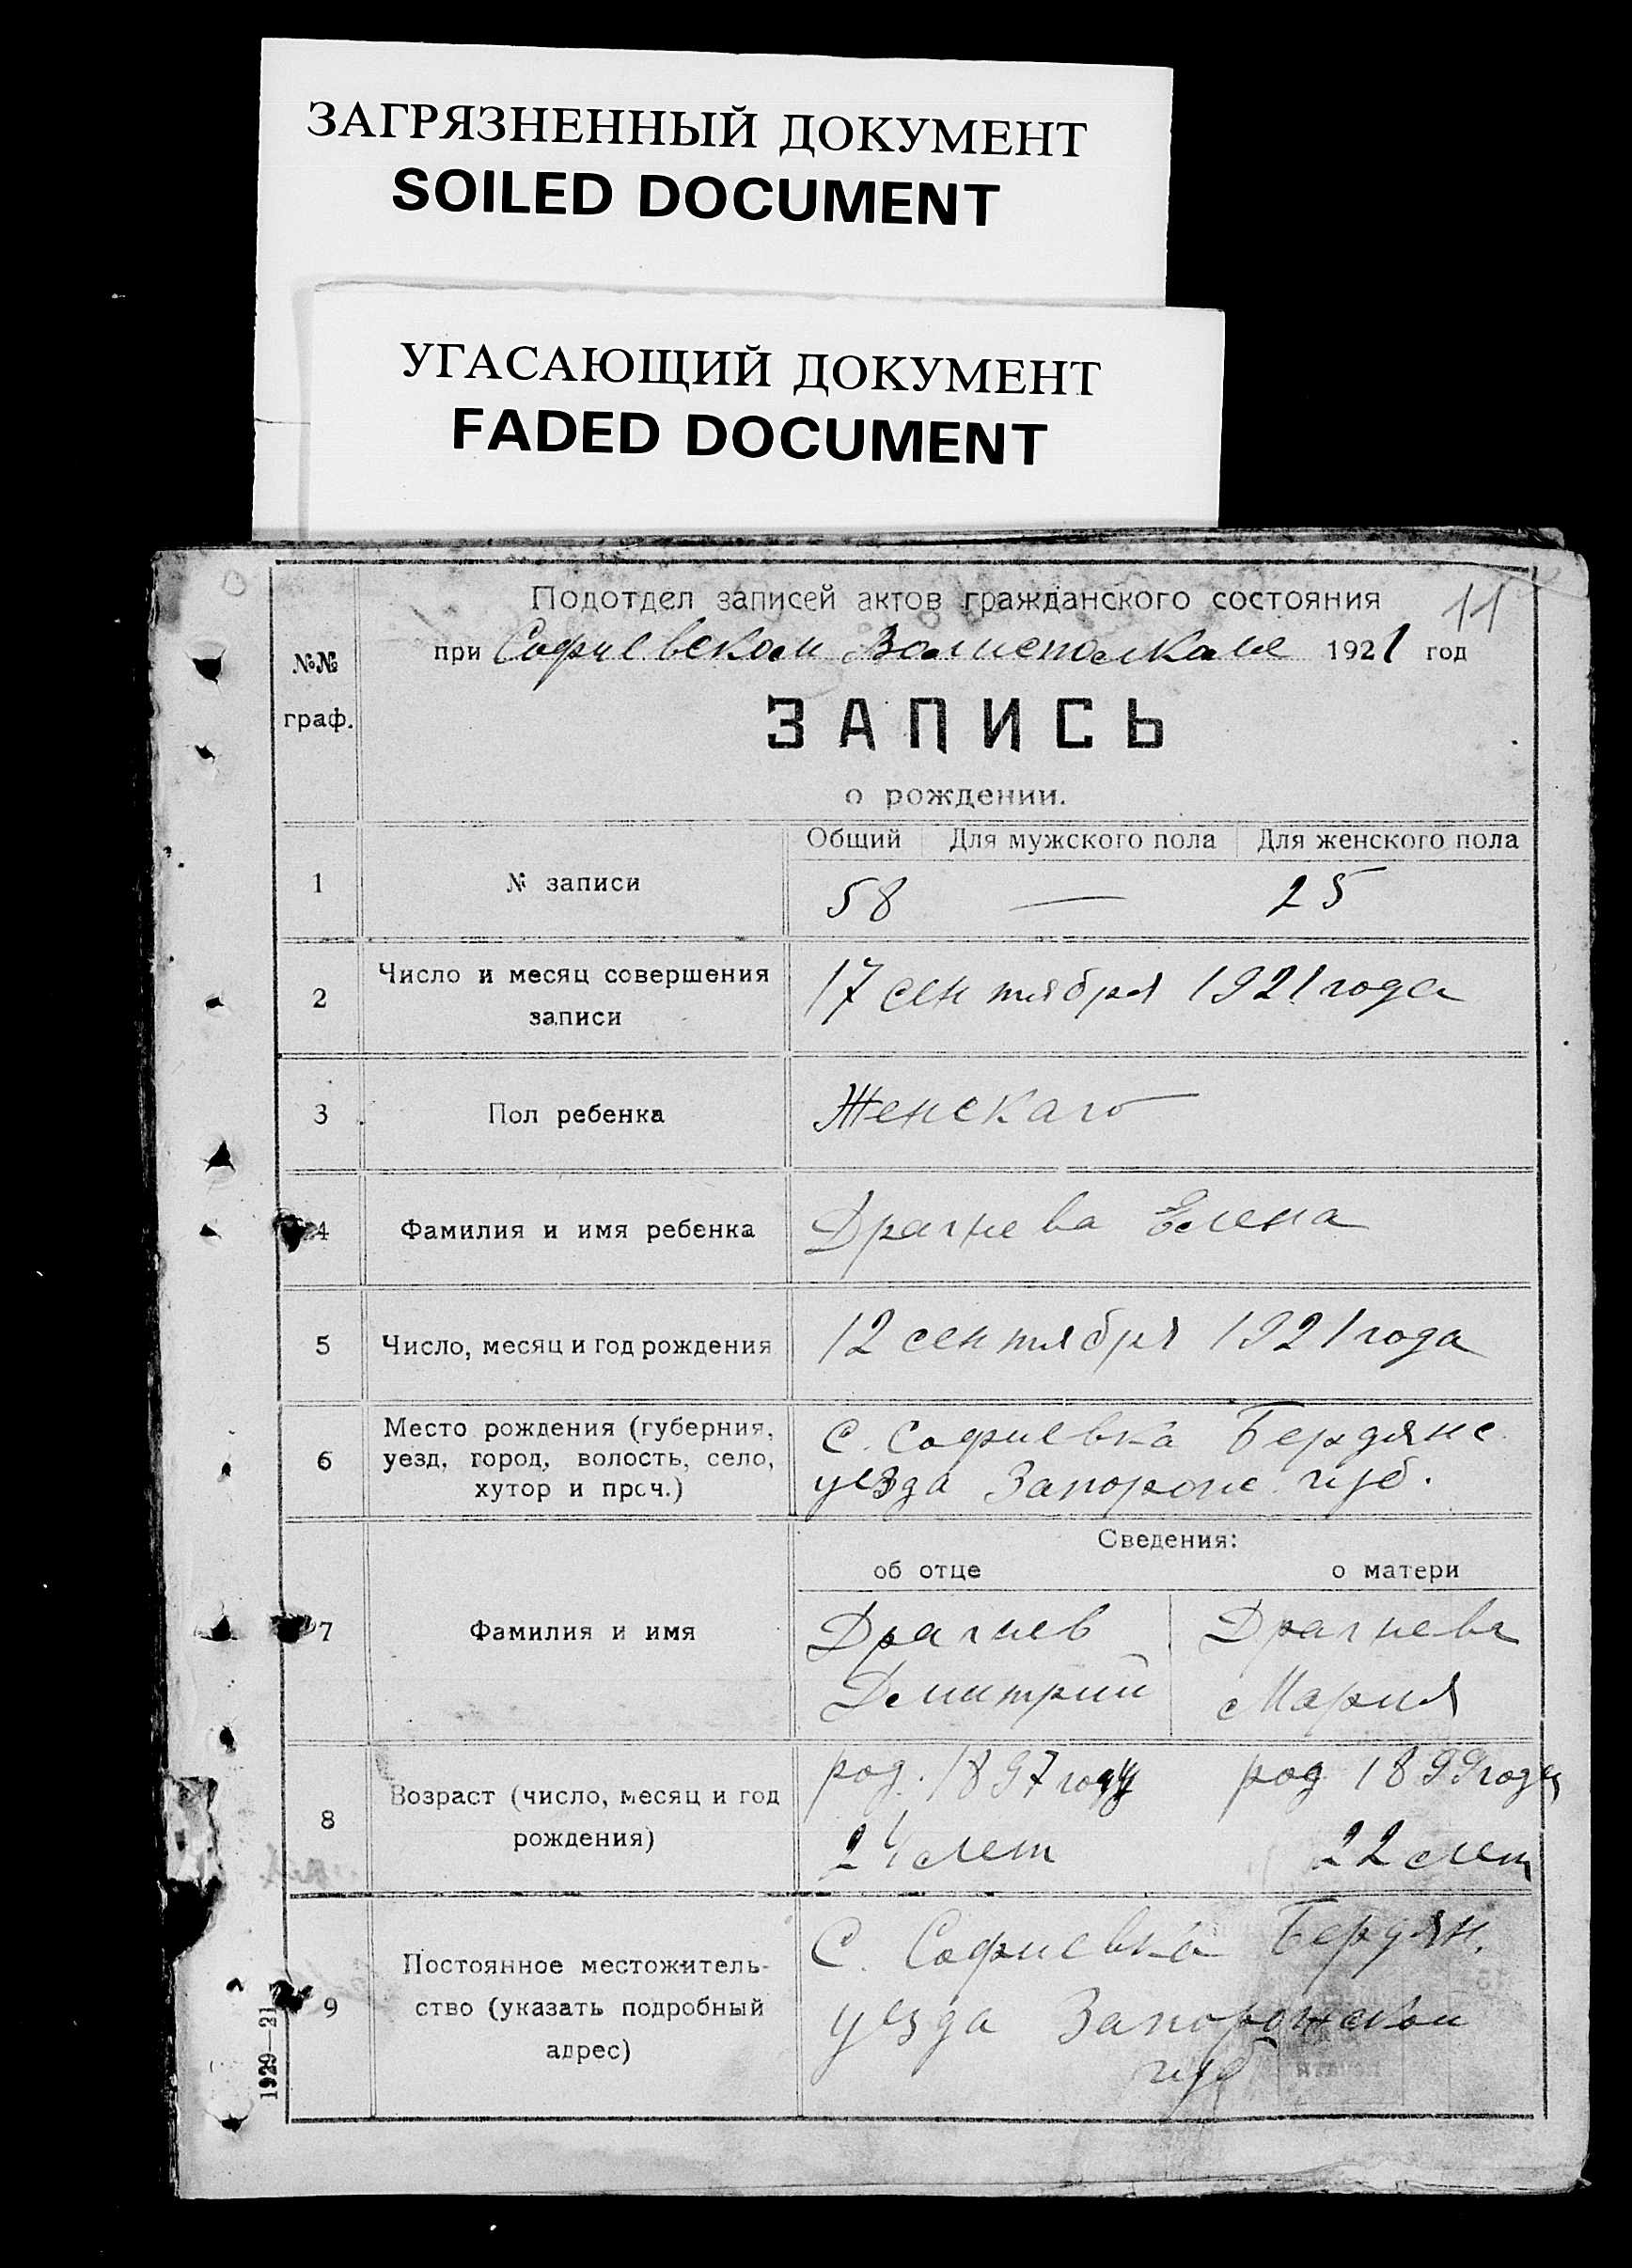 ЗАГРЯЗНЕННЫЙ ДОКУМЕНТ
SOILED DOCUMENT
УГАСАЮЩИЙ ДОКУМЕНТ
FADED DOCUMENT
11
Подотдел записей актов гражданского состояния
при Софиевском Волисполкоме 1921 год
№№
граф.
ЗАПИСЬ
о рождении.
Общий Для мужского пола Для женского пола
1 № записи 58 — 25
2 Число и месяц совершения
записи
17 сентября 1921 года
3 Пол ребенка Женскаго
4 Фамилия и имя ребенка Драгнева Елена
5 Число, месяц и год рождения 12 сентября 1921 года
6 Место рождения (губерния,
уезд, город, волость, село,
хутор и проч.)
С. Софиевка Бердянс.
уезда Запорож. губ.
Сведения:
об отце о матери
7 Фамилия и имя
Драгнев
Дмитрий
Драгнева
Мария
8 Возраст (число, месяц и год
рождения)
род. 1897 году
24 лет
род 1899 году
22 лет
9 Постоянное местожитель-
ство (указать подробный
адрес)
С. Софиевка Бердян.
уезда Запорожской
губ
1929—21